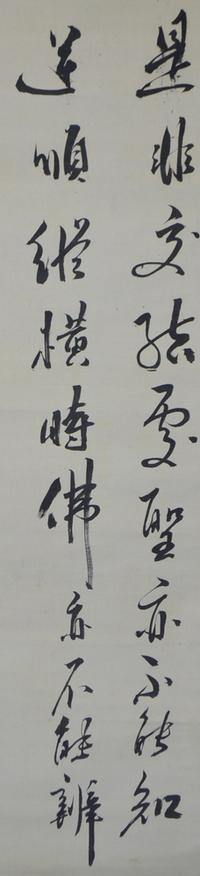 是非交結處聖亦不能知
逆順縱橫時佛亦不能辨